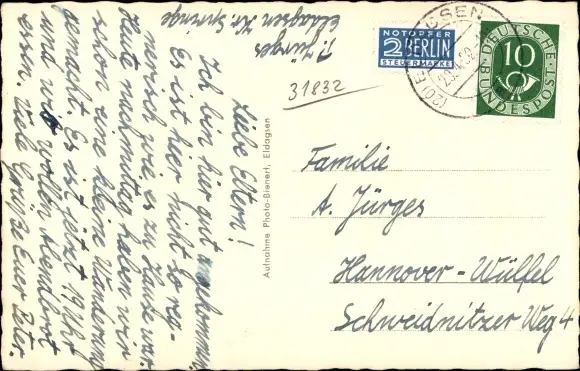 P. Jürges
Eldagsen Kr. Springe
Liebe Eltern!
Ich bin hier gut angekommen.
Es ist hier nicht so reg-
nerisch wie es zu Hause war.
Heute nachmittag haben wir
schon eine kleine Wanderung
gemacht. Es ist jetzt 19 Uhr
und wir wollen Abendbrot
essen. Viele Grüße Euer Peter.
Aufnahme Photo-Bienert, Eldagsen
31832
NOTOPFER
2 BERLIN
STEUERMARKE
ELDAGSEN
DEUTSCHE
10
BUNDESPOST
Familie
A. Jürges
Hannover-Wülfel
Schweidnitzer Weg 4